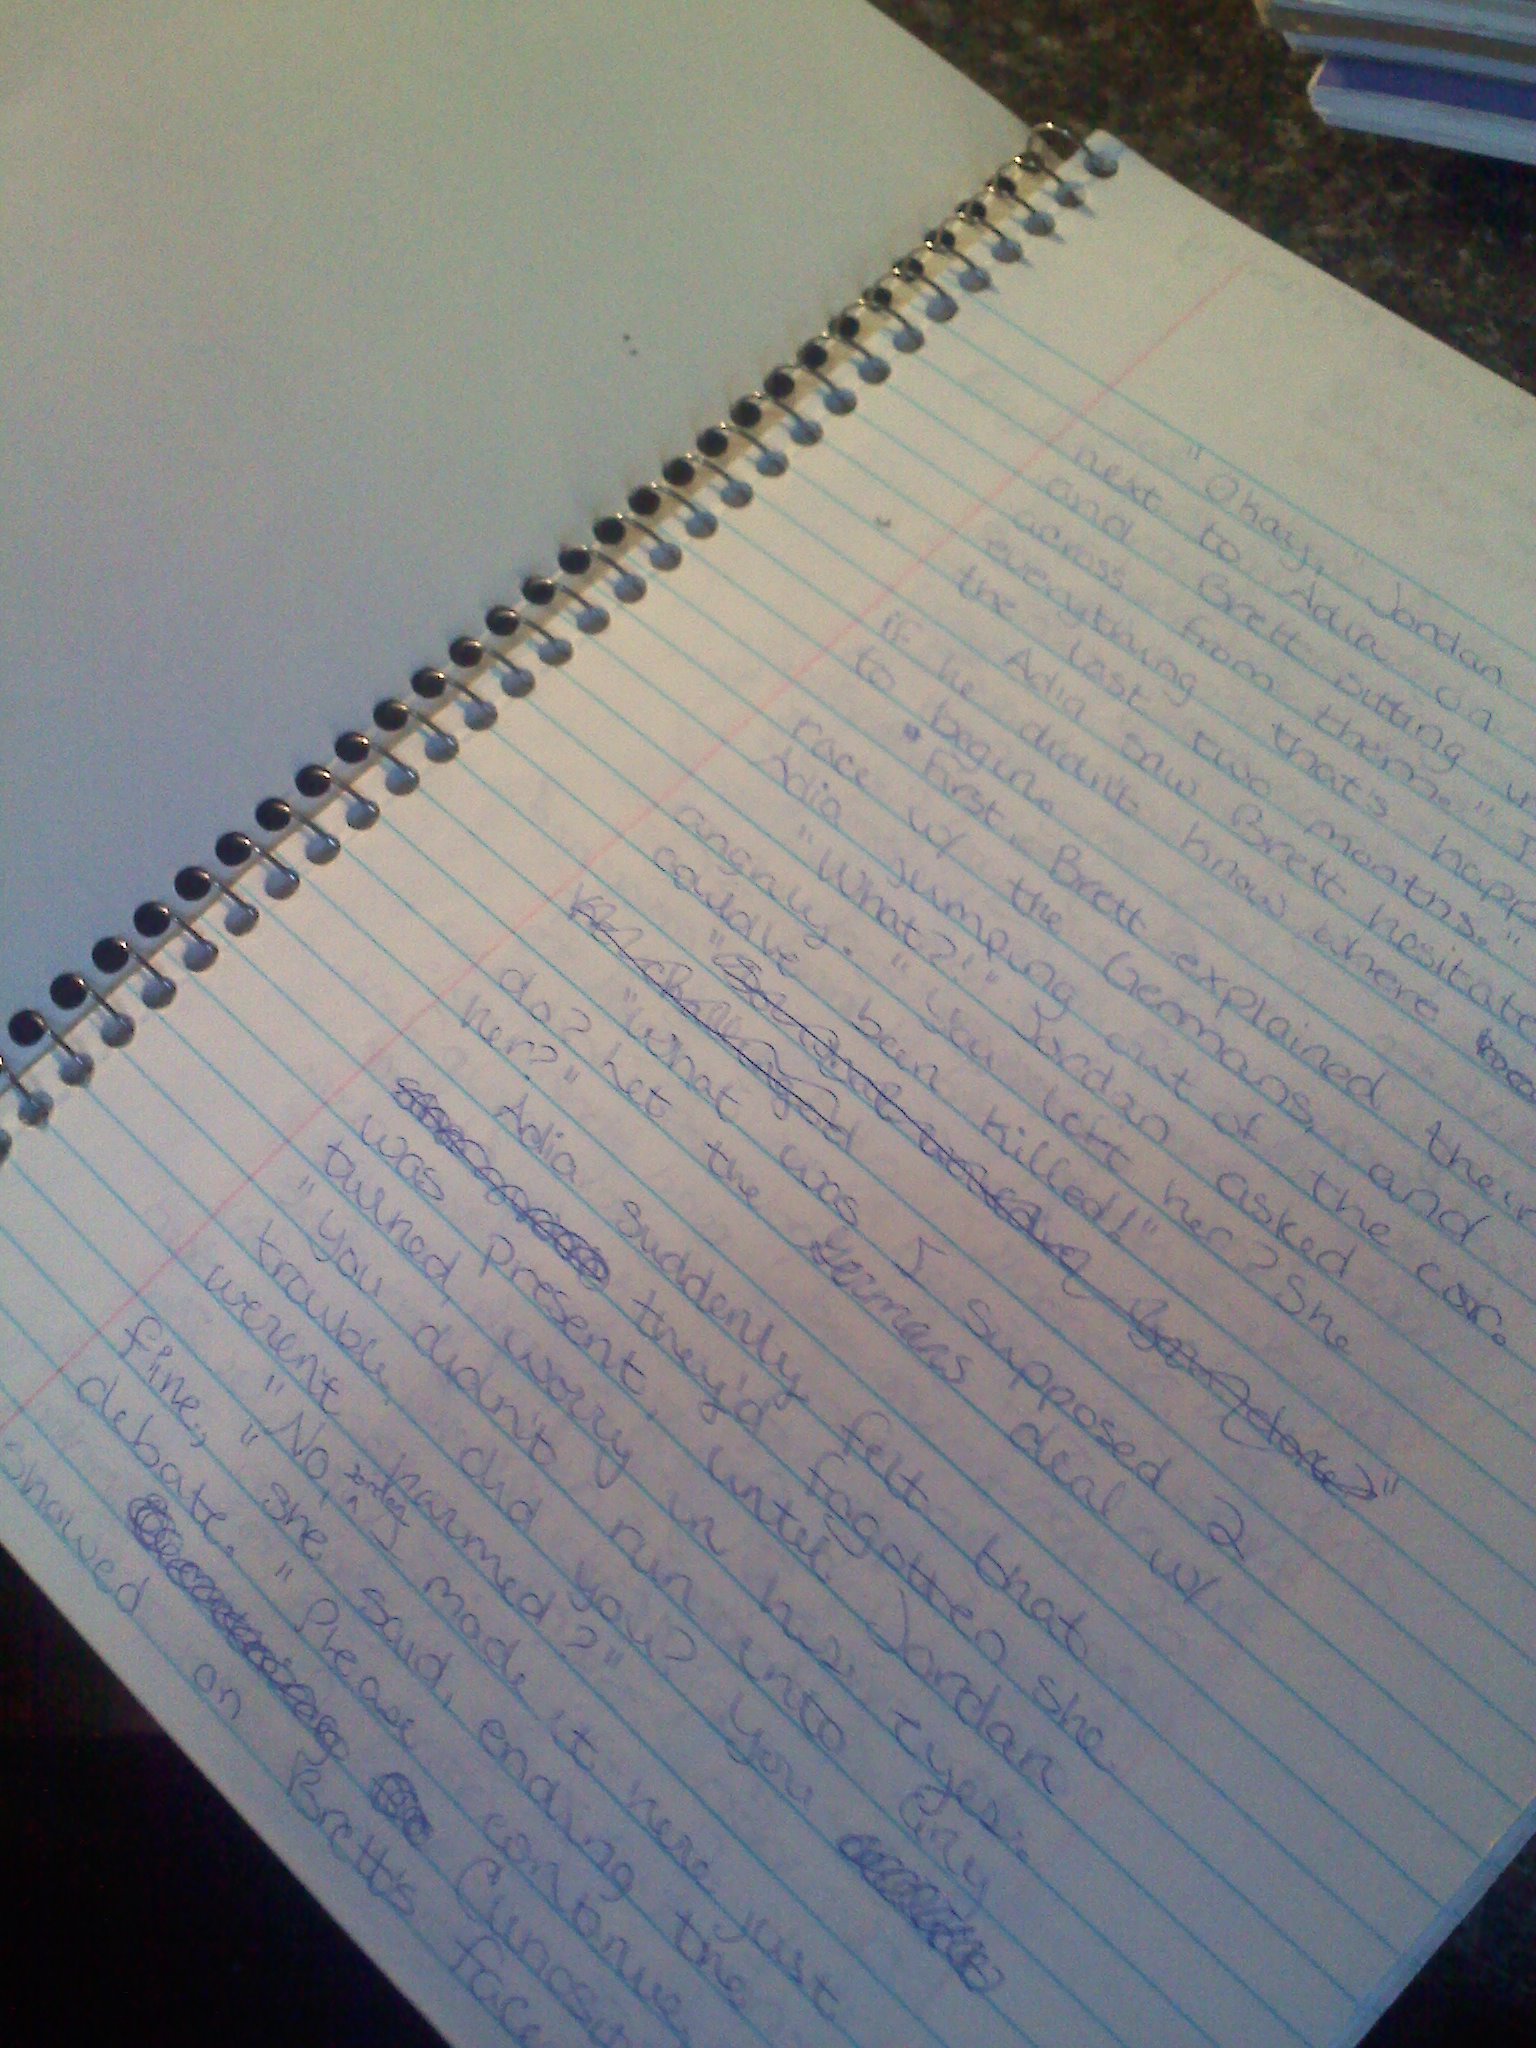 "Okay," Jordan
next to Adia
and Brett sitting
across from them. "I
everything that's happ
the last two months."
Adia saw Brett hesitate
if he didn't know where
to begin.
"First, Brett explained their
race w/ the Germans, and
Adia jumping out of the car.
"What?!" Jordan asked
angrily. "You left her? She
could've been killed!"
"What was I supposed 2
do? Let the Germans deal w/
her?"
Adia suddenly felt that
they'd fogotten she
was present, until Jordan
turned, worry in his eyes.
"You didn't run into any
trouble, did you? You
werent harmed?"
"No, Jordan, I made it here just
fine," she said, ending the
debate. "Please continue
Curiosit
shaiwed on Brett's face